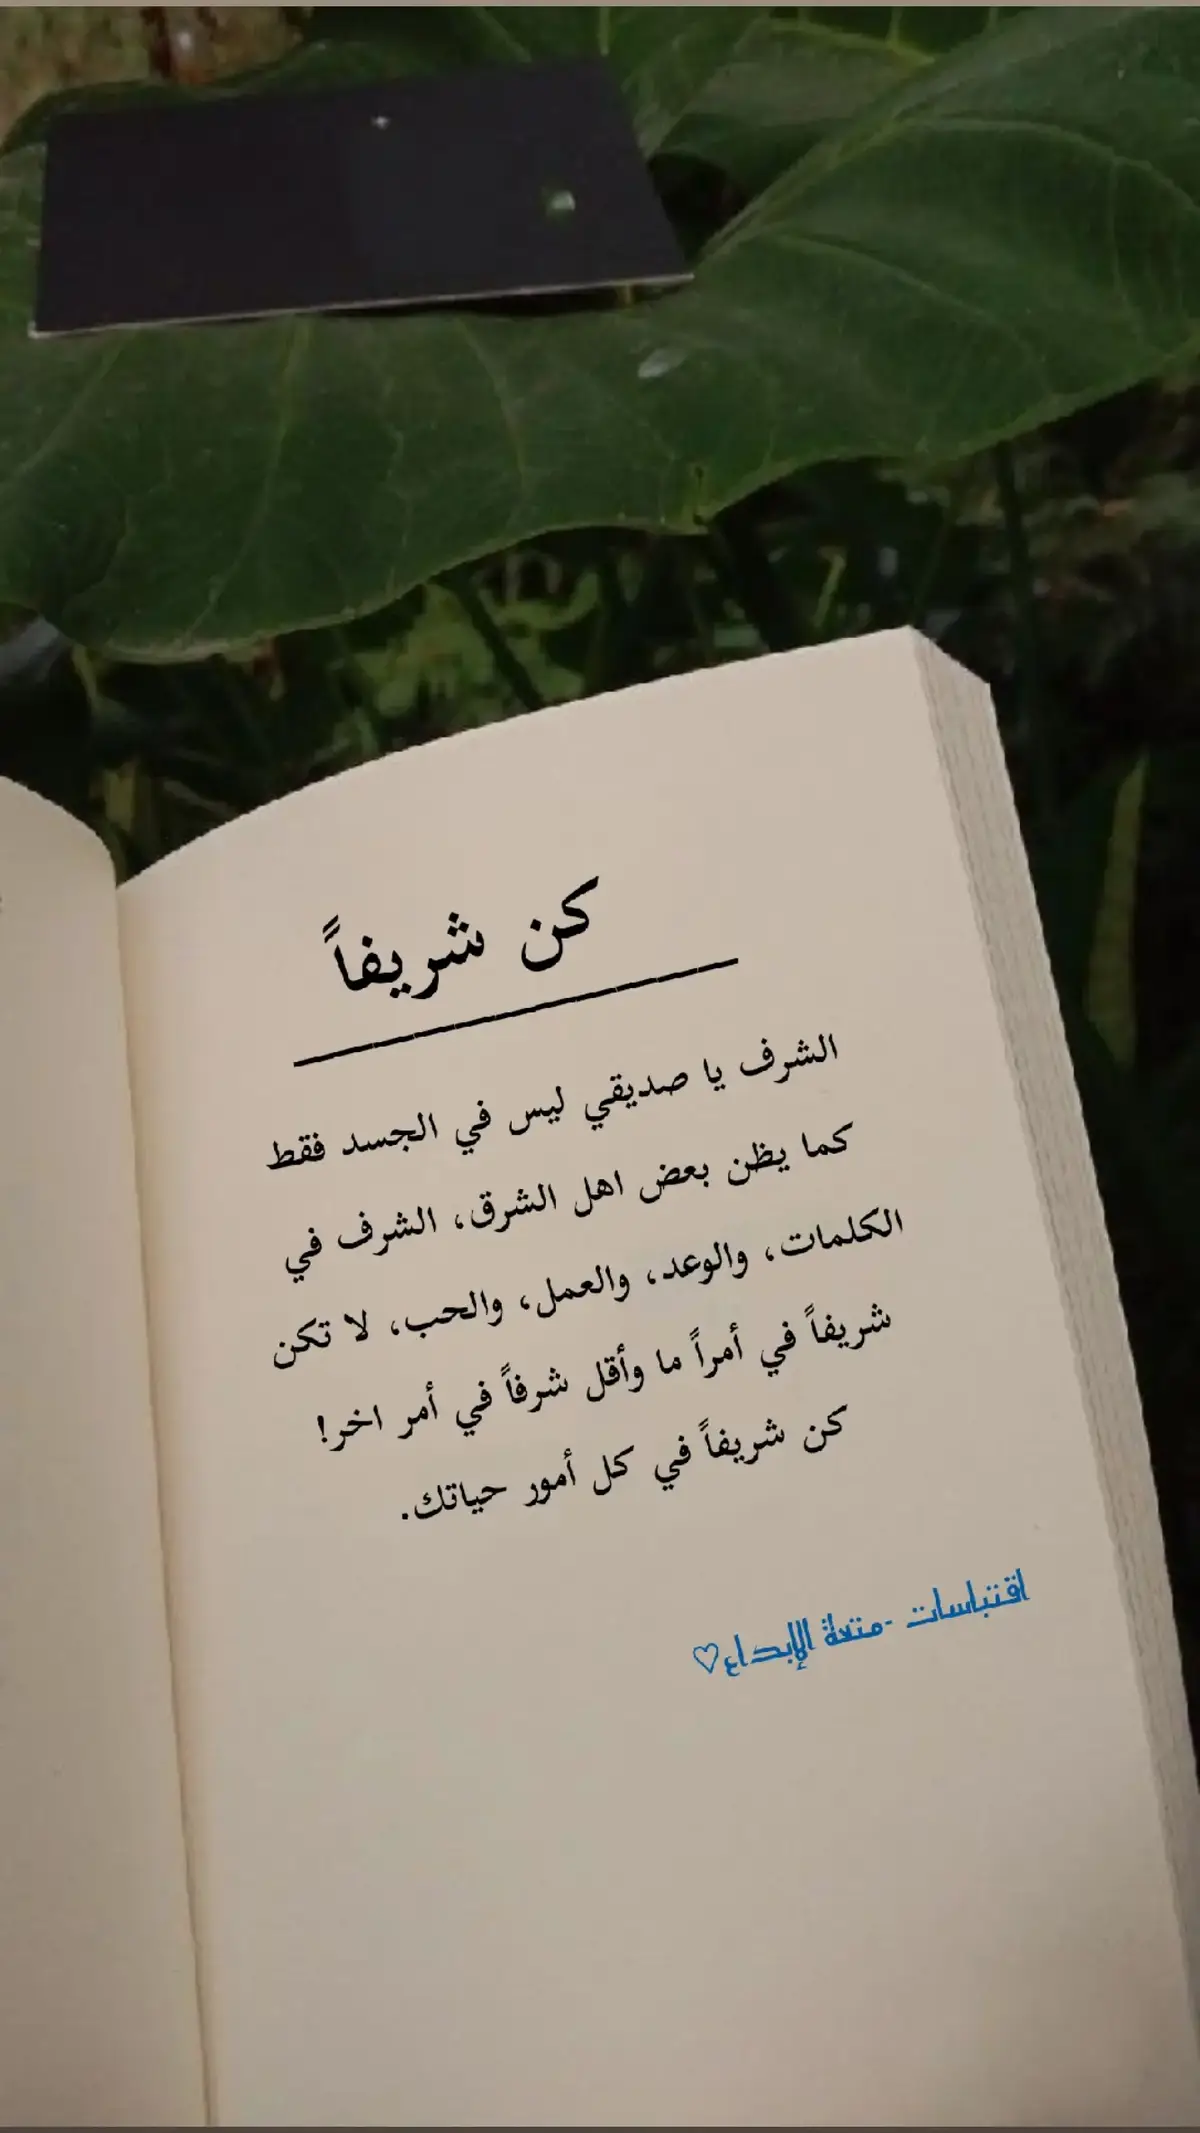 كن شريفاً
الشرف يا صديقي ليس في الجسد فقط
كما يظن بعض اهل الشرق، الشرف في
الكلمات، والوعد، والعمل، والحب، لا تكن
شريفاً في أمراً ما وأقل شرفاً في أمر اخر!
كن شريفاً في كل أمور حياتك.
اقتباسات -متعة الإبداع♡